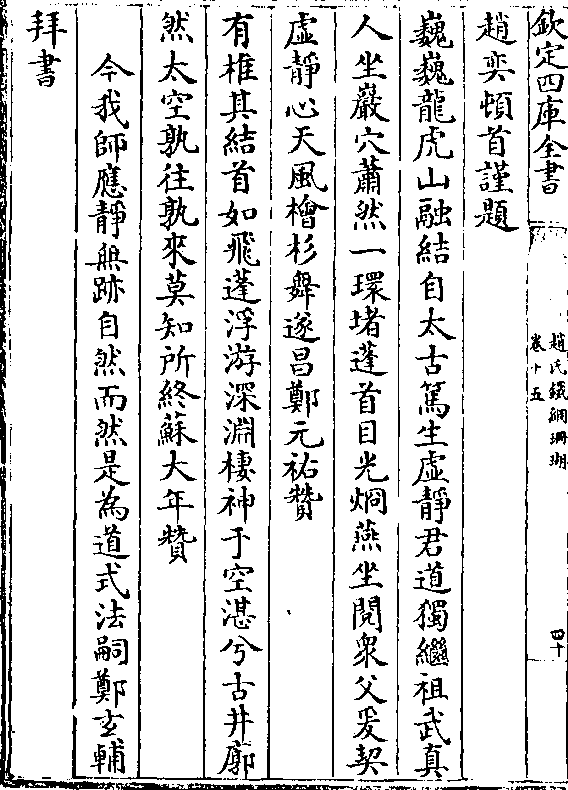 欽定四庫全書
趙氏鐵網珊瑚
卷十五
四十
趙奕頓首謹題
巍巍龍虎山融結自太古篤生虛靜君道獨繼祖武真
人坐巖穴蕭然一環堵蓬首目光烱燕坐閱衆父爰契
虛靜心天風檜杉舞遂昌鄭元祐贊
有椎其結首如飛蓬浮游深淵棲神于空湛兮古井廓
然太空孰往孰來莫知所終蘇大年贊
今我師應靜無跡自然而然是為道式法嗣鄭玄輔
拜書